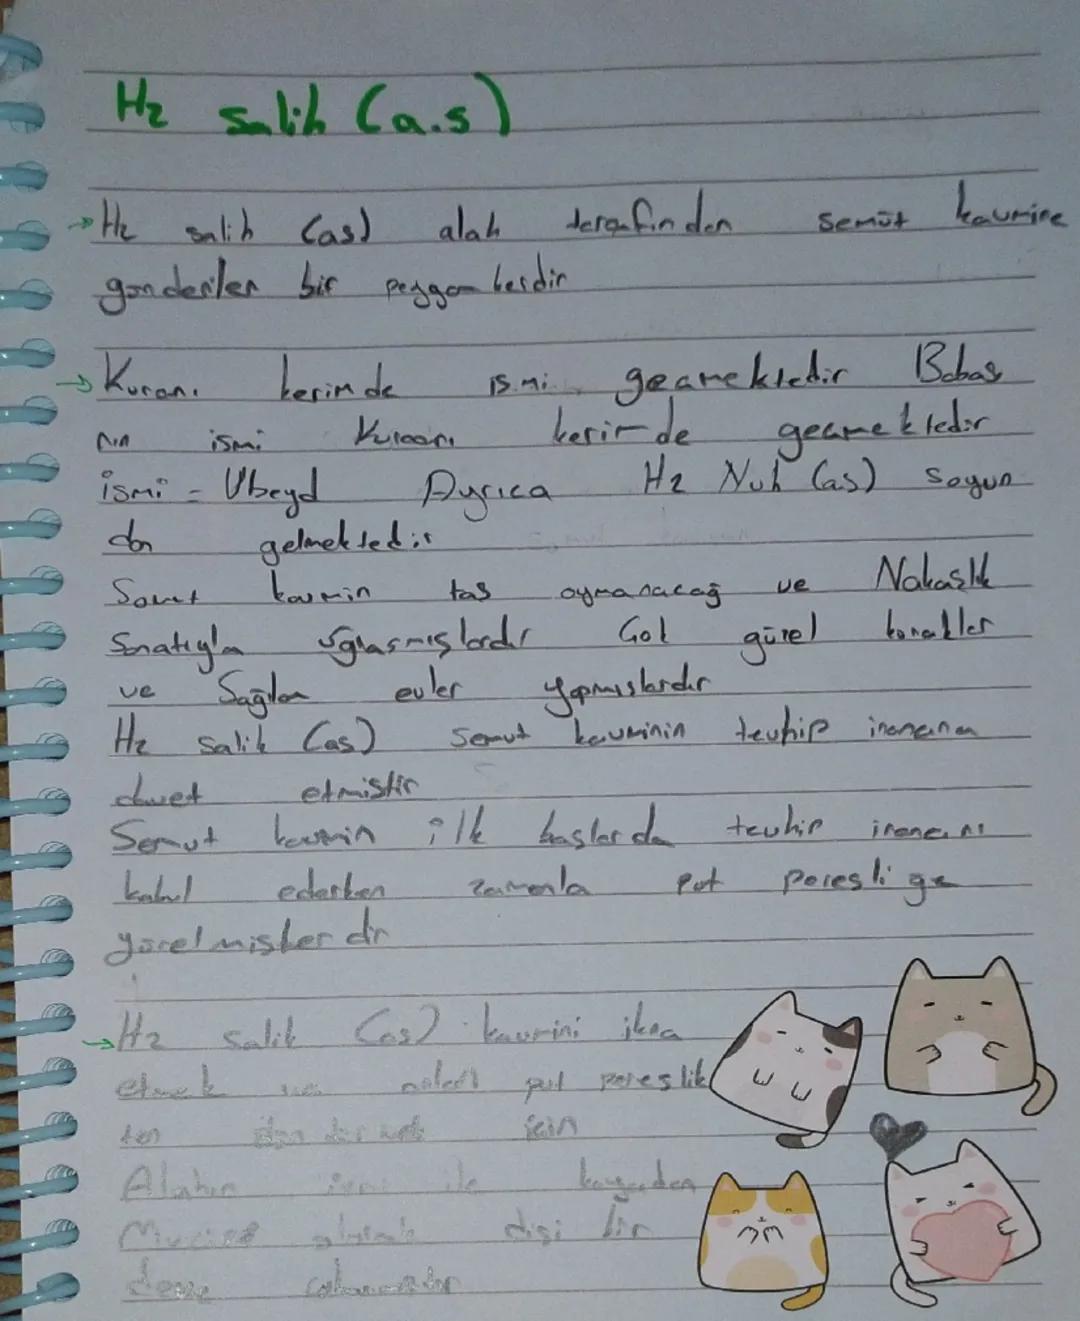 Hz salih (a.s)
→ Hz salih (as) alah terafinden semût kavmine
gonderilen bir peygamberdir
→ Kuranı kerimde ismi geçmektedir Babas
nın ismi Kuranı kerimde geçmektedir
ismi = Ubeyd Ayrıca Hz Nuh (as) soyun
dan gelmektedir
Semut kavmin tas oymanacağ ve Nakaşlık
Sanatıyla uğlasmışlardır Gol güzel konakler
ve Sağlam evler yapmıslardır
Hz salih (as) Semut kavminin tevhip inancına
davet etmistir
Semut kavmin ilk baslarda tevhip inancını
kabul ederken zamanla put peresliğe
yönelmisler dir
→ Hz salih (as) kavmini ikna
etmek ve onları put pereslik
ten için
Alahın izni ile kayadan
Mucize olarak dişi bir
deve